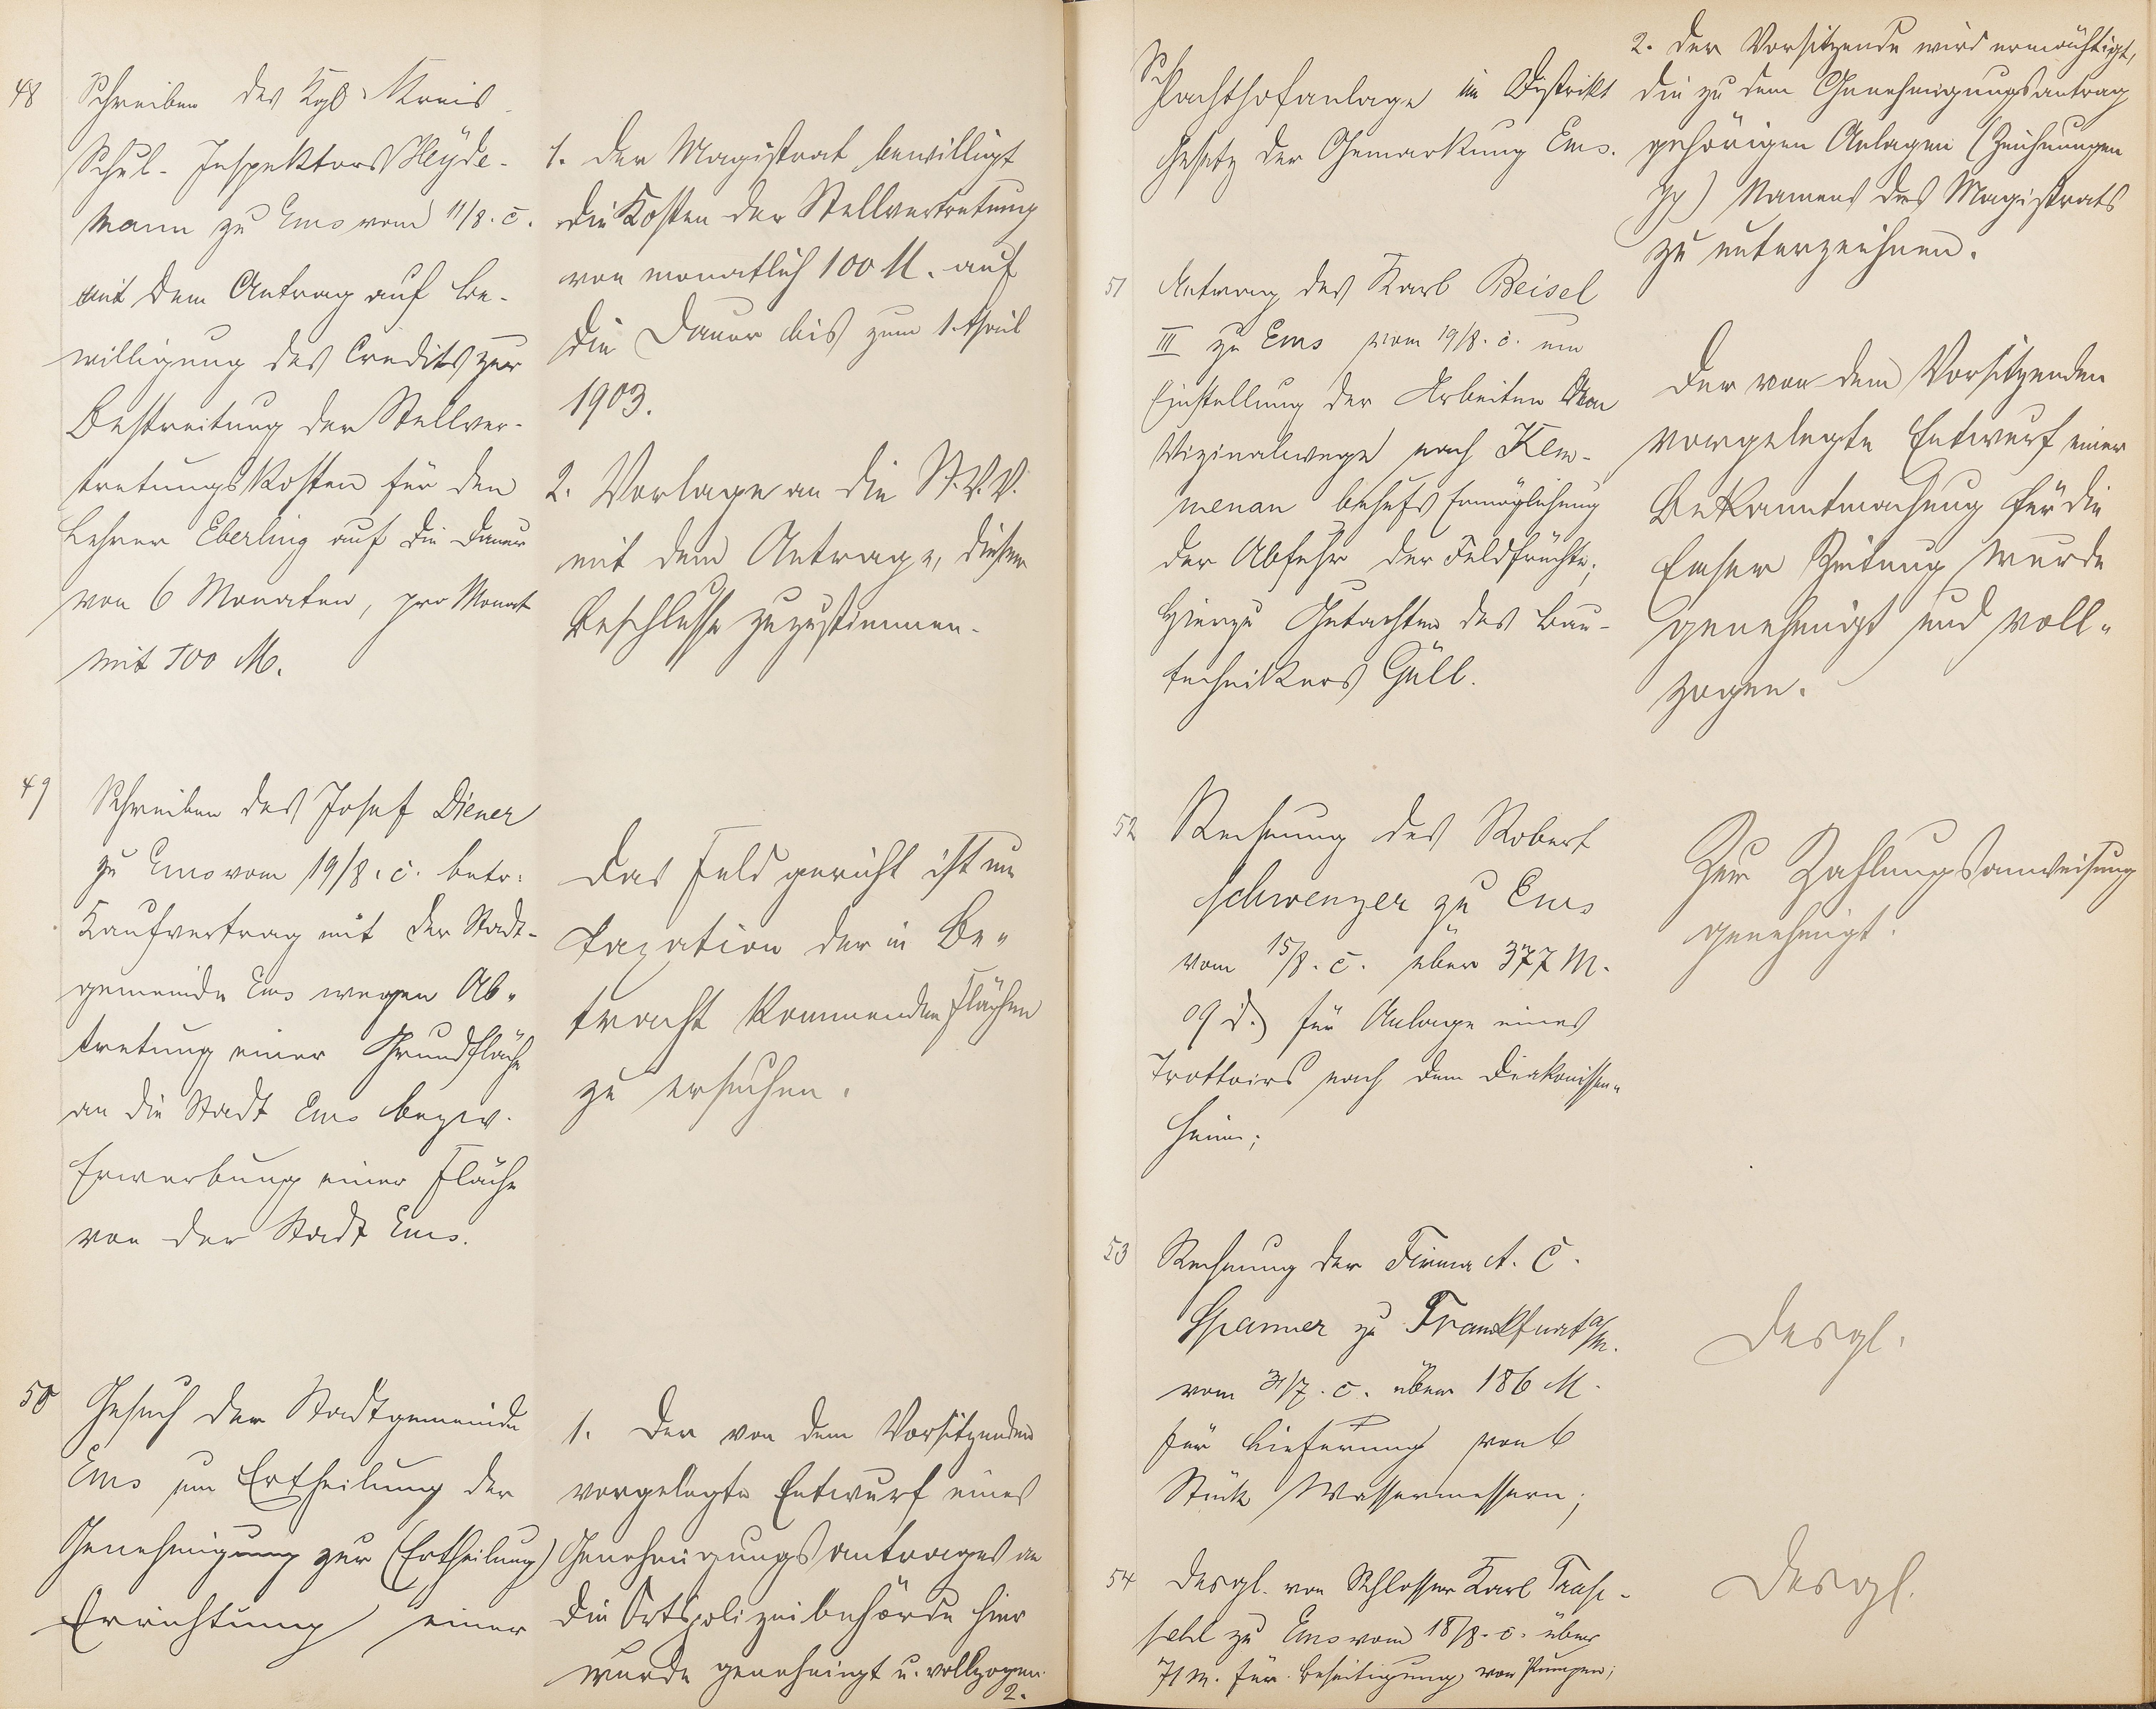 48
Schreiben des Kgl. Kreis
Schul-Inspektors Heyde-
mann zu Ems vom 11/8. c.
mit dem Antrag auf Be-
willigung des Credits zur
Bestreitung der Stellver-
tretungskosten für den
Lehrer Eberling auf die Dauer
von 6 Monaten, pro Monat
mit 100 M.
1. Der Magistrat bewilligt
die Kosten der Stellvertretung
von monatlich 100 M. auf
die Dauer bis zum 1. April
1903.
2. Vorlage an die St.V.V.
mit dem Antrage, diesem
Beschlusse zuzustimmen.
49
Schreiben des Josef Diener
zu Ems vom 19/8. c. betr.
Kaufvertrag mit der Stadt-
gemeinde Ems wegen Ab-
tretung einer Grundfläche
an die Stadt Ems bezw.
Erwerbung einer Fläche
von der Stadt Ems.
Das Feldgericht ist um
Taxation der in Be-
tracht kommenden Flächen
zu ersuchen.
50
Gesuch der Stadtgemeinde
Ems um Ertheilung der
Genehmigung zur (Ertheilung)
Errichtung einer
1. Der von dem Vorsitzenden
vorgelegte Entwurf eines
Genehmigungsantrages an
die Ortspolizeibehörde hier
wurde genehmigt u. vollzogen.
2.
Schlachthofanlage im Distrikt
Gesetz der Gemarkung Ems.
2. Der Vorsitzende wird ermächtigt,
die zu dem Genehmigungsantrag
gehörigen Anlagen (Zeichnungen
pp) Namens des Magistrats
zu unterzeichnen.
51
Antrag des Karl Beisel
III zu Ems vom 19/8. c. um
Einstellung der Arbeiten am
Vizinalwege nach Kem-
menau behufs Ermöglichung
der Abfuhr der Feldfrüchte;
Hierzu Gutachten des Bau-
technikers Güll.
Der von dem Vorsitzenden
vorgelegte Entwurf einer
Bekanntmachung für die
Emser Zeitung wurde
genehmigt und voll-
zogen.
52
Rechnung des Robert
Schwenzer zu Ems
vom 15/8. c. über 377 M.
09 d. für Anlage eines
Trottoirs nach dem Diakonissen-
heim;
Zur Zahlungsanweisung
genehmigt.
53
Rechnung der Firma A. C.
Spanner zu Frankfurt a/M.
vom 31/7. c. über 186 M.
für Lieferung von 6
Stück Wassermessern;
Desgl.
54
Desgl. von Schlosser Karl
zu Ems vom 18/8. c. über
71 M. für Beseitigung von Pumpen;
Desgl.